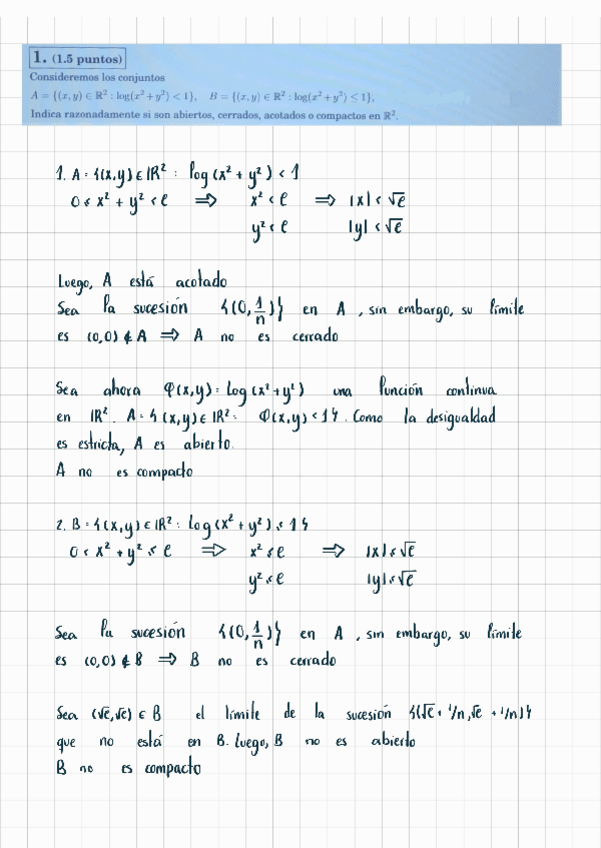 1. (1.5 puntos)
Consideremos los conjuntos
A = {(x, y) ∈ ℝ² : log(x² + y²) < 1}, B = {(x, y) ∈ ℝ² : log(x² + y²) ≤ 1},
Indica razonadamente si son abiertos, cerrados, acotados o compactos en ℝ².
1. A = {(x,y) ∈ ℝ² : log (x² + y²) < 1
0 < x² + y² < e ⇒ x² < e ⇒ |x| < √e
y² < e |y| < √e
Luego, A está acotado
Sea la sucesión {(0, 1/n)} en A, sin embargo, su límite
es (0,0) ∉ A ⇒ A no es cerrado
Sea ahora φ(x,y) = log (x² + y²) una función continua
en ℝ². A = {(x,y) ∈ ℝ² : φ(x,y) < 1}. Como la desigualdad
es estricta, A es abierto.
A no es compacto
2. B = {(x,y) ∈ ℝ² : log (x² + y²) ≤ 1}
0 < x² + y² ≤ e ⇒ x² ≤ e ⇒ |x| ≤ √e
y² ≤ e |y| ≤ √e
Sea la sucesión {(0, 1/n)} en A, sin embargo, su límite
es (0,0) ∉ B ⇒ B no es cerrado
Sea (√e, √e) ∈ B el límite de la sucesión {(√e + 1/n, √e + 1/n)}
que no está en B. Luego, B no es abierto
B no es compacto